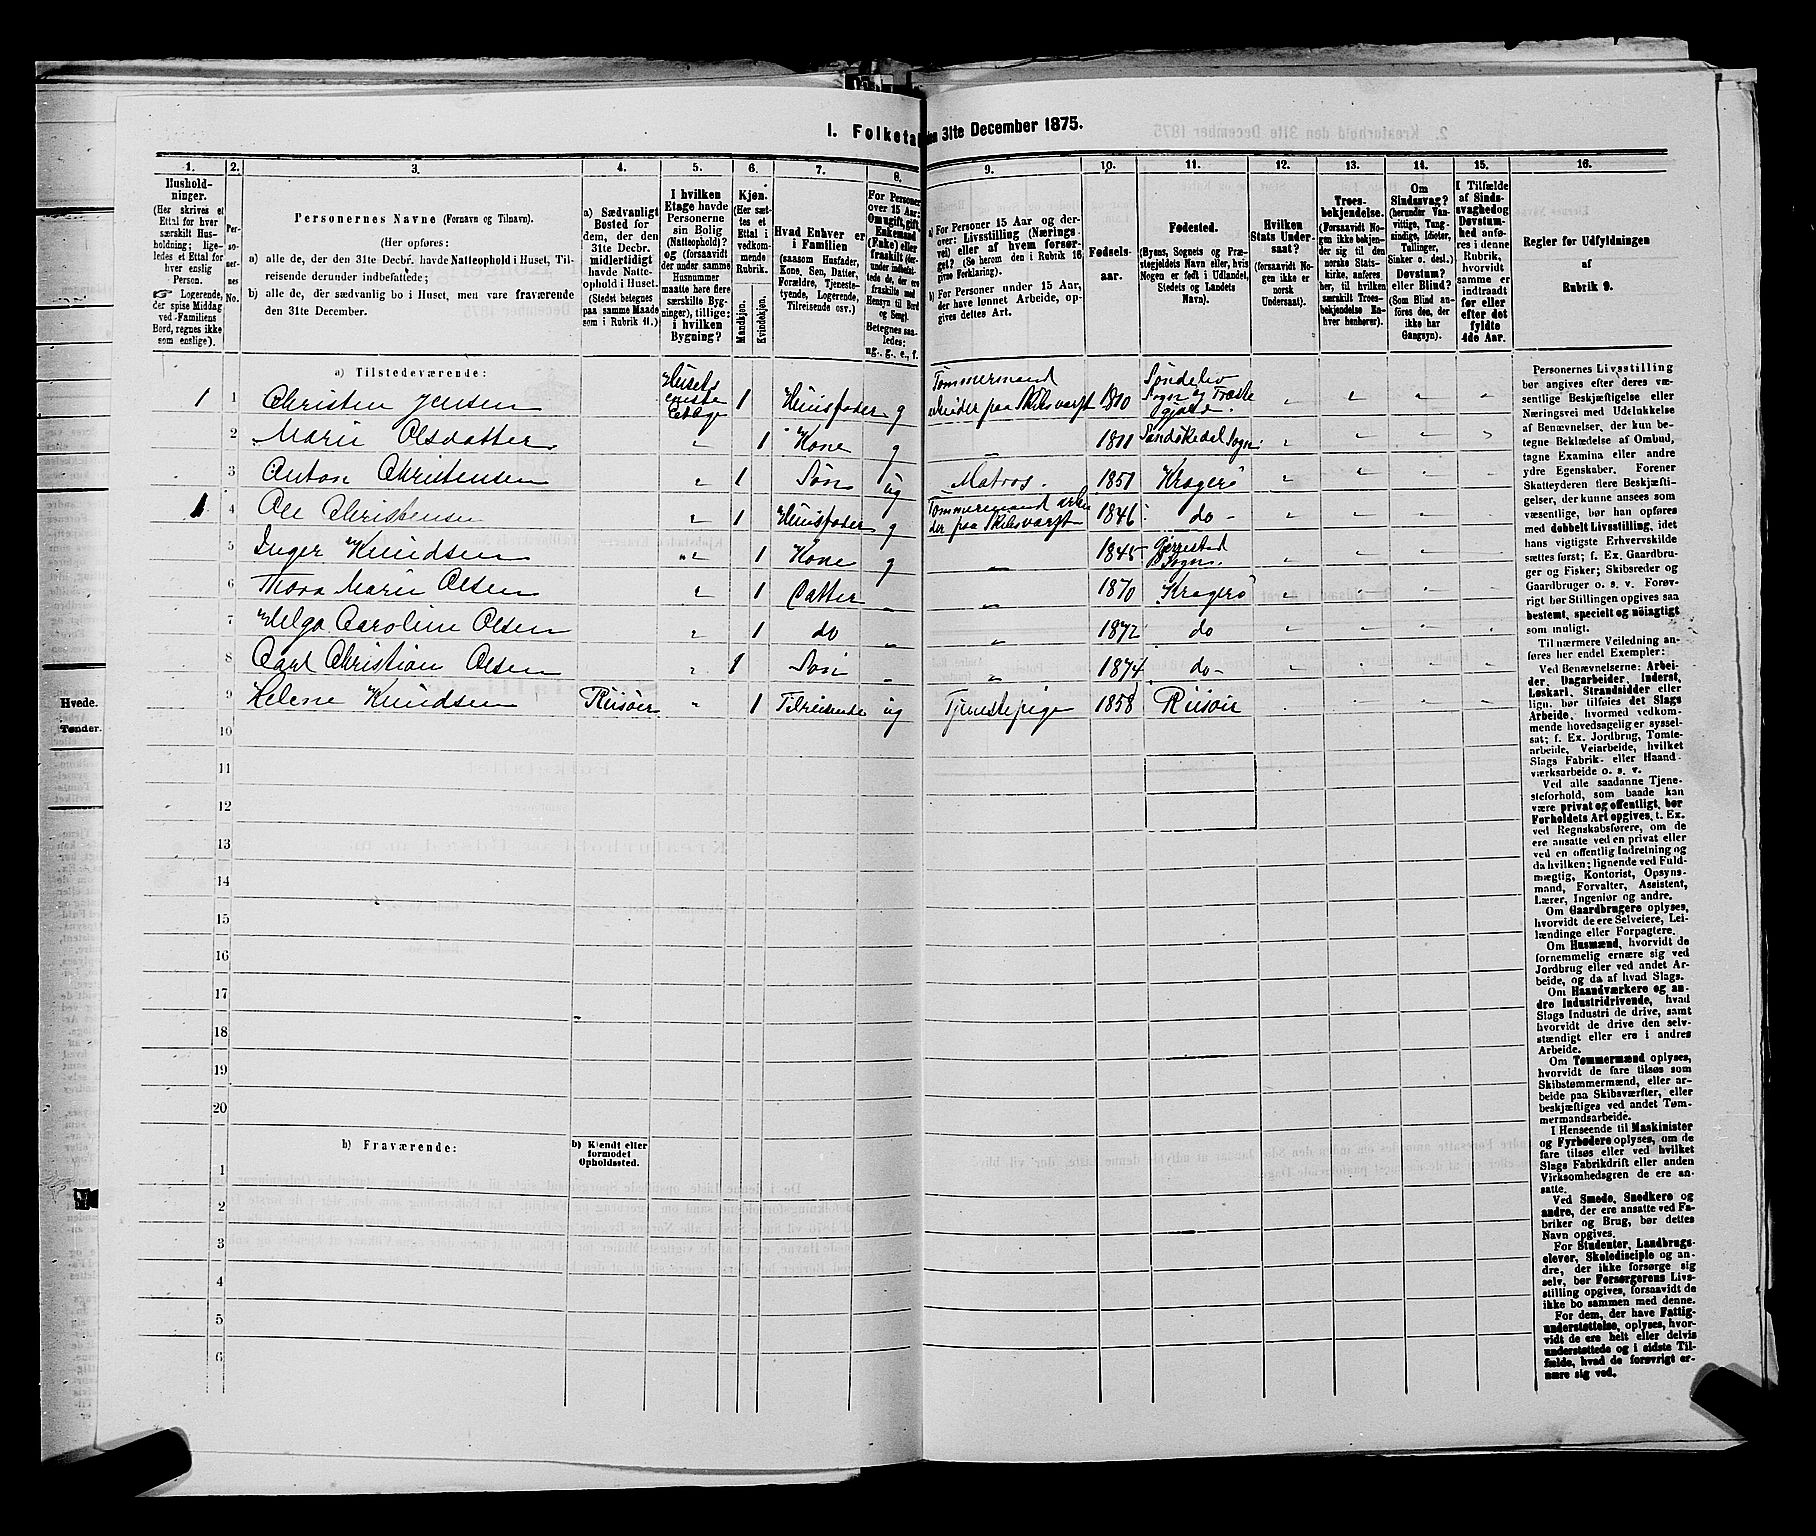 I. Folketa en 31te December 1875.
1. 2. 3. 4. 5. 6. 7. 8. 9. 10. 11. 12. 13. 14. 15. 16.
Hushold-
ninger.
(Her skrives et
Ettal for hver
særskilt Hus-
holdning; lige-
ledes et Ettal for
hver enslig
Person.
☞ Logerende,
der spise Middag
ved Familiens
Bord, regnes ikke
som enslige).
Per-
so-
ner-
nes
No.
Personernes Navne (Fornavn og Tilnavn).
(Her opføres:
a) alle de, der den 31te Decbr. havde Natteophold i Huset, Til-
reisende derunder indbefattede;
b) alle de, der sædvanlig bo i Huset, men vare fraværende
den 31te December.
a) Sædvanligt
Bosted for
dem, der den
31te Decbr.
midlertidigt
havde Natte-
ophold i Huset.
(Stedet betegnes
paa samme Maade
som i Rubrik 11.)
I hvilken
Etage havde
Personerne
sin Bolig
(Natteophold)?
og (forsaavidt
der under samme
Husnummer
maatte høre flere
særskilte Byg-
ninger), tillige:
i hvilken
Bygning?
Kjøn.
(Her sæt-
tes et
Ettal i
vedkom-
mende
Rubrik.
Mandkjøn.
Kvindekjøn.
Hvad Enhver er
i Familien
(saasom Husfader,
Kone, Søn, Datter,
Forældre, Tjeneste-
tyende, Logerende,
Tilreisende osv.)
For Personer
over 15 Aar:
Om ugift, gift,
Enkemand
(Enke) eller
fraskilt (der-
under indbefat-
tede de, der ere
fraskilte med
Hensyn til Bord
og Seng).
Betegnes saa-
ledes:
ug., g., e., f.
a) For Personer 15 Aar og der-
over: Livsstilling (Nærings-
vei) eller af hvem forsør-
get? (Se herom den i Rubrik 16
givne Forklaring).
b) For Personer under 15 Aar,
der have lønnet Arbeide, op-
gives dettes Art.
Fødsels-
aar.
Fødested.
(Byens, Sognets og Præ-
stegjeldets Navn eller, hvis
Nogen er født i Udlandet,
Stedets og Landets
Navn).
Hvilken
Stats Under-
saat?
(forsaavidt No-
gen ikke er
norsk
Undersaat).
Troes-
bekjendelse.
(Forsaavidt No-
gen ikke bekjen-
der sig til den
norske Stats-
kirke, anføres
her, til hvilken
særskilt Troes-
bekjendelse En-
hver henhører).
Om
Sindssvag?
(herunder Van-
vittige, Tung-
sindige, Idioter,
Tullinger,
Sinker o. desl.)
Døvstum?
eller Blind?
(Som Blind an-
føres den, der
ikke har
Gangsyn).
I Tilfælde
af Sinds-
svaghed og
Døvstum-
hed anfø-
res i denne
Rubrik,
hvorvidt
samme er
indtraadt
før eller
efter det
fyldte
4de Aar.
Regler for Udfyldningen
af
Rubrik 9.
a) Tilstedeværende:
1 1 Christen Jensen Husets eneste Etage 1 Huusfader g Tømmermand arbeider paa Skibsværft 1810 Søndelev Sogn
2 Marie Olsdatter " 1 Kone g " 1811 Sandøkedal Sogn
3 Anton Christensen " 1 Søn ug Matros. 1851 Kragerø
1 4 Ole Christensen " 1 Huusfader g Tømmermand arbei der paa Skibsværft 1846 do
5 Inger Knudsen " 1 Kone g " 1845 Gjerrestad Sogn.
6 Thora Marie Olsen " 1 Datter " " 1870 Kragerø
7 Helga Caroline Olsen " 1 do " " 1872 do
8 Carl Christian Olsen " 1 Søn " " 1874 do
9 Helene Knudsen Riisøer " 1 Tilreisende ug Tjenestepige 1858 Riisøir
10
11
12
13
14
15
16
17
18
19
20
b) Fraværende:
b) Kjendt eller
formodet
Opholdssted.
1
2
3
4
5
6
Personernes Livsstilling
bør angives efter deres væ-
sentlige Beskjæftigelse eller
Næringsvei med Udelukkelse
af Benævnelser, der kun be-
tegne Beklædelse af Ombud,
tagne Examina eller andre
ydre Egenskaber. Forener
Skatteyderen flere Beskjæfti-
gelser, der kunne ansees som
væsentlige, bør han opføres
med dobbelt Livsstilling, idet
hans vigtigste Erhvervskilde
sættes først; f. Ex. Gaardbru-
ger og Fisker; Skibsreder og
Gaardbruger o. s. v. Forøv-
rigt bør Stillingen opgives saa
bestemt, specielt og nöiagtigt
som muligt.
Til nærmere Veiledning an-
føres her endel Exempler:
Ved Benævnelserne: Arbei-
der, Dagarbeider, Inderst,
Løskarl, Strandsidder eller
lign. bør tilføies det Slags
Arbeide, hvormed vedkom-
mende hovedsagelig er syssel-
sat; f. Ex. Jordbrug, Tomte-
arbeide, Veiarbeide, hvilket
Slags Fabrik- eller Haand-
værksarbeide o. s. v.
Ved alle saadanne Tjene-
steforhold, som baade kan
være privat og offentligt, bør
Forholdets Art opgives, t. Ex.
ved Regnskabsførere, om de
ere ansatte ved en privat eller
ved en offentlig Indretning og
da hvilken; lignende ved Fuld-
mægtig, Kontorist, Opsyns-
mand, Forvalter, Assistent,
Lærer, Ingeniør og andre.
Om Gaardbrugere oplyses,
hvorvidt de ere Selveiere, Lei-
lændinge eller Forpagtere.
Om Husmænd, hvorvidt de
fornemmelig ernære sig ved
Jordbrug eller ved andet Ar-
beide, og da af hvad Slags.
Om Haandværkere og an-
dre Industridrivende, hvad
Slags Industri de drive, samt
hvorvidt de drive den selv-
stændigt eller ere i andres
Arbeide.
Om Tømmermænd oplyses,
hvorvidt de fare tilsøs som
Skibstømmermænd, eller ar-
beide paa Skibsværfter, eller
beskjæftiges ved andet Tøm-
mermandsarbeide.
I Henseende til Maskinister
og Fyrbødere oplyses, om de
fare tilsøs eller ved hvilket
Slags Fabrikdrift eller anden
Virksomhedsgren de ere an-
satte.
Ved Smede, Snedkere og
andre, der ere ansatte ved Fa-
briker og Brug, bør dettes
Navn opgives.
For Studenter, Landbrugs-
elever, Skoledisciple og an-
dre, der ikke forsørge sig
selv, bør Forsørgerens Livs-
stilling opgives, forsaavidt de
ikke bo sammen med denne.
For dem, der have Fattig-
understøttelse, oplyses, hvor-
vidt de ere helt eller delvis
understøttede og i sidste Til-
fælde, hvad de forøvrigt er-
nære sig ved.
Hvede.
Tønder.